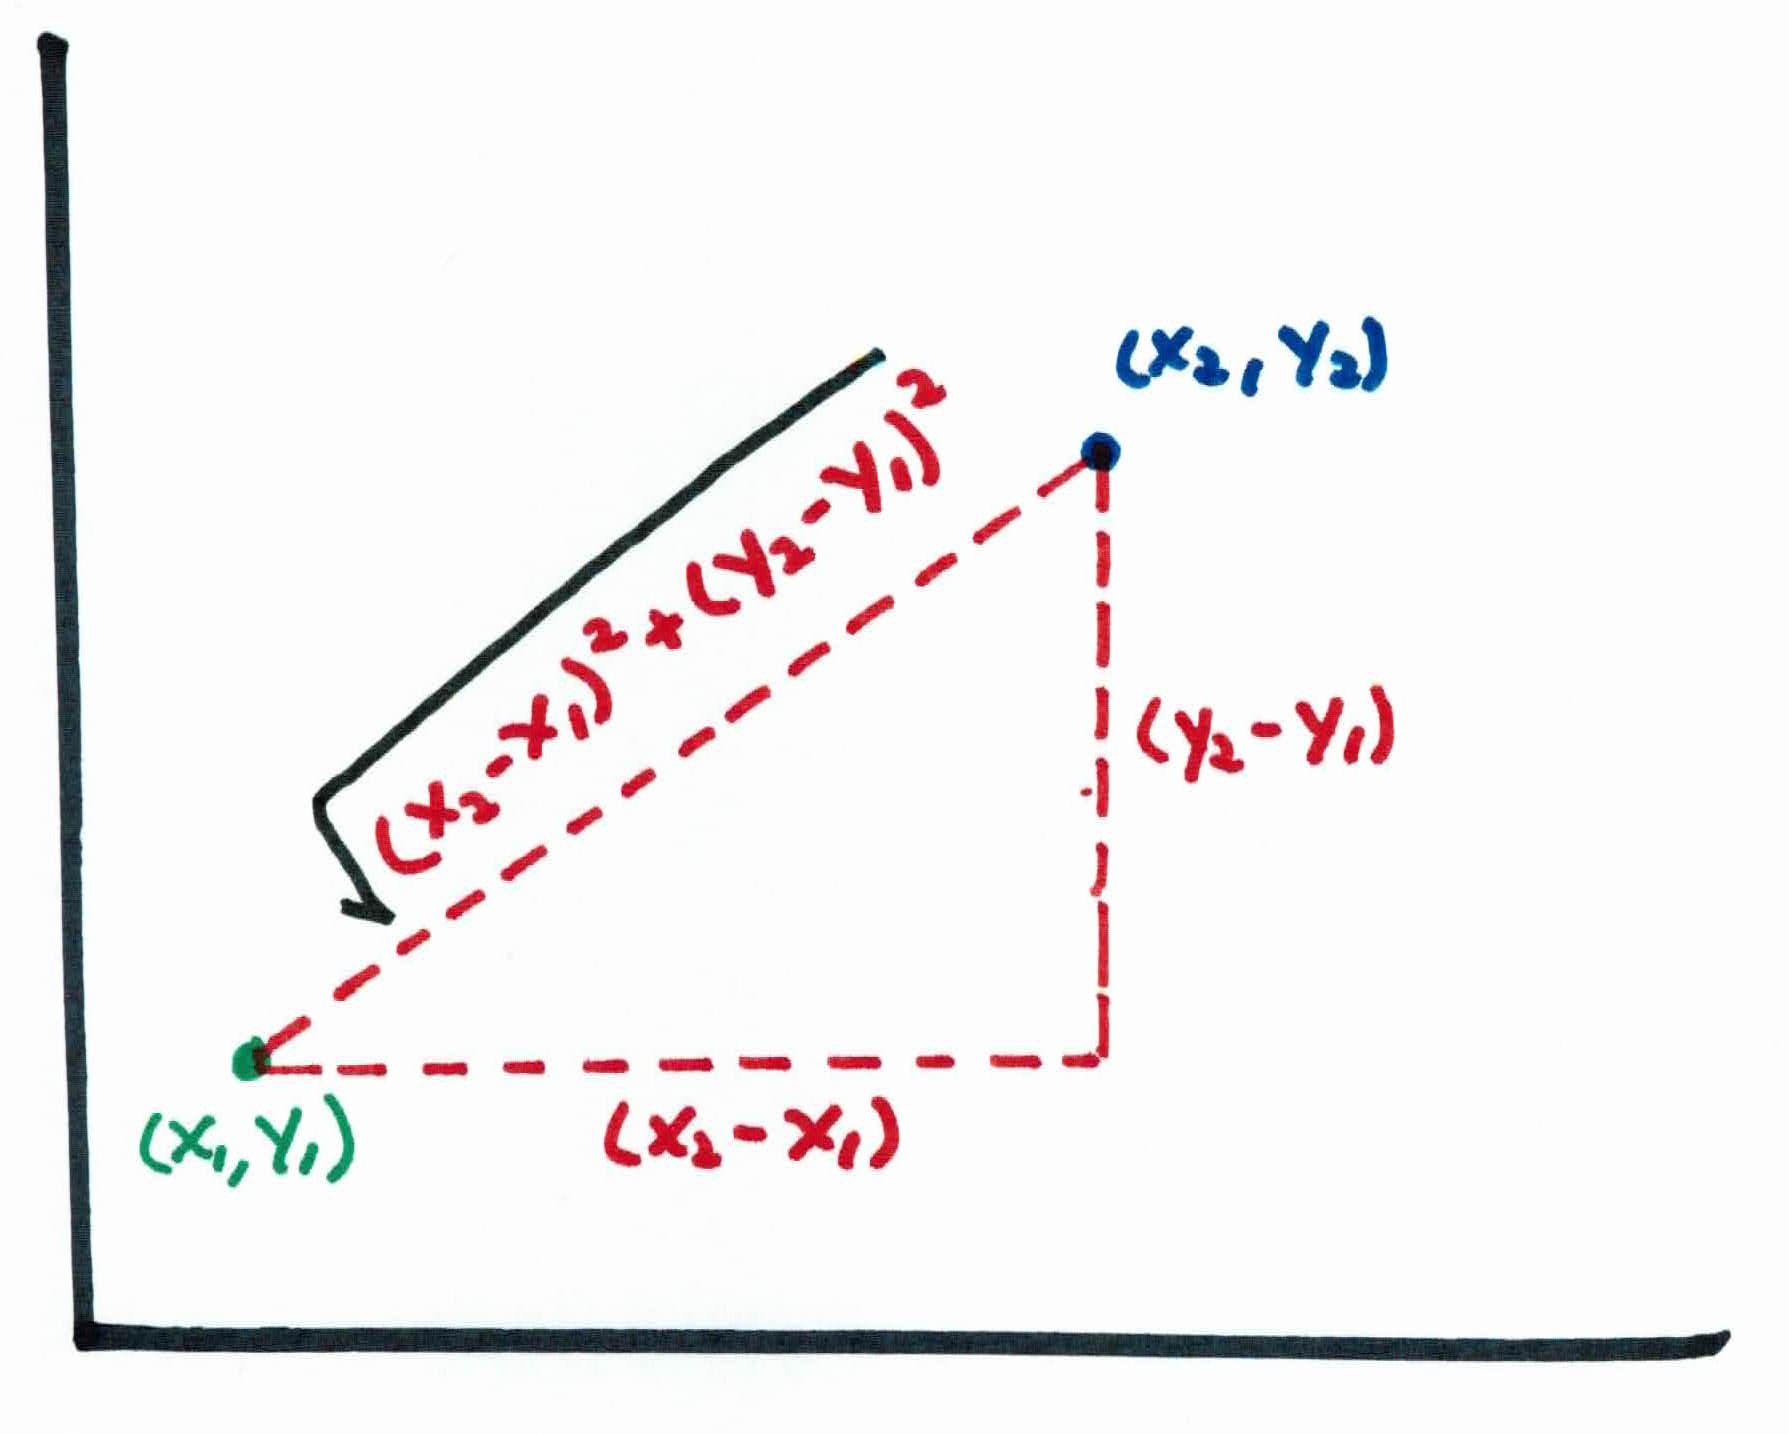 (x₂, y₂)
√(x₂-x₁)²+(y₂-y₁)²
(y₂-y₁)
(x₁, y₁)
(x₂-x₁)